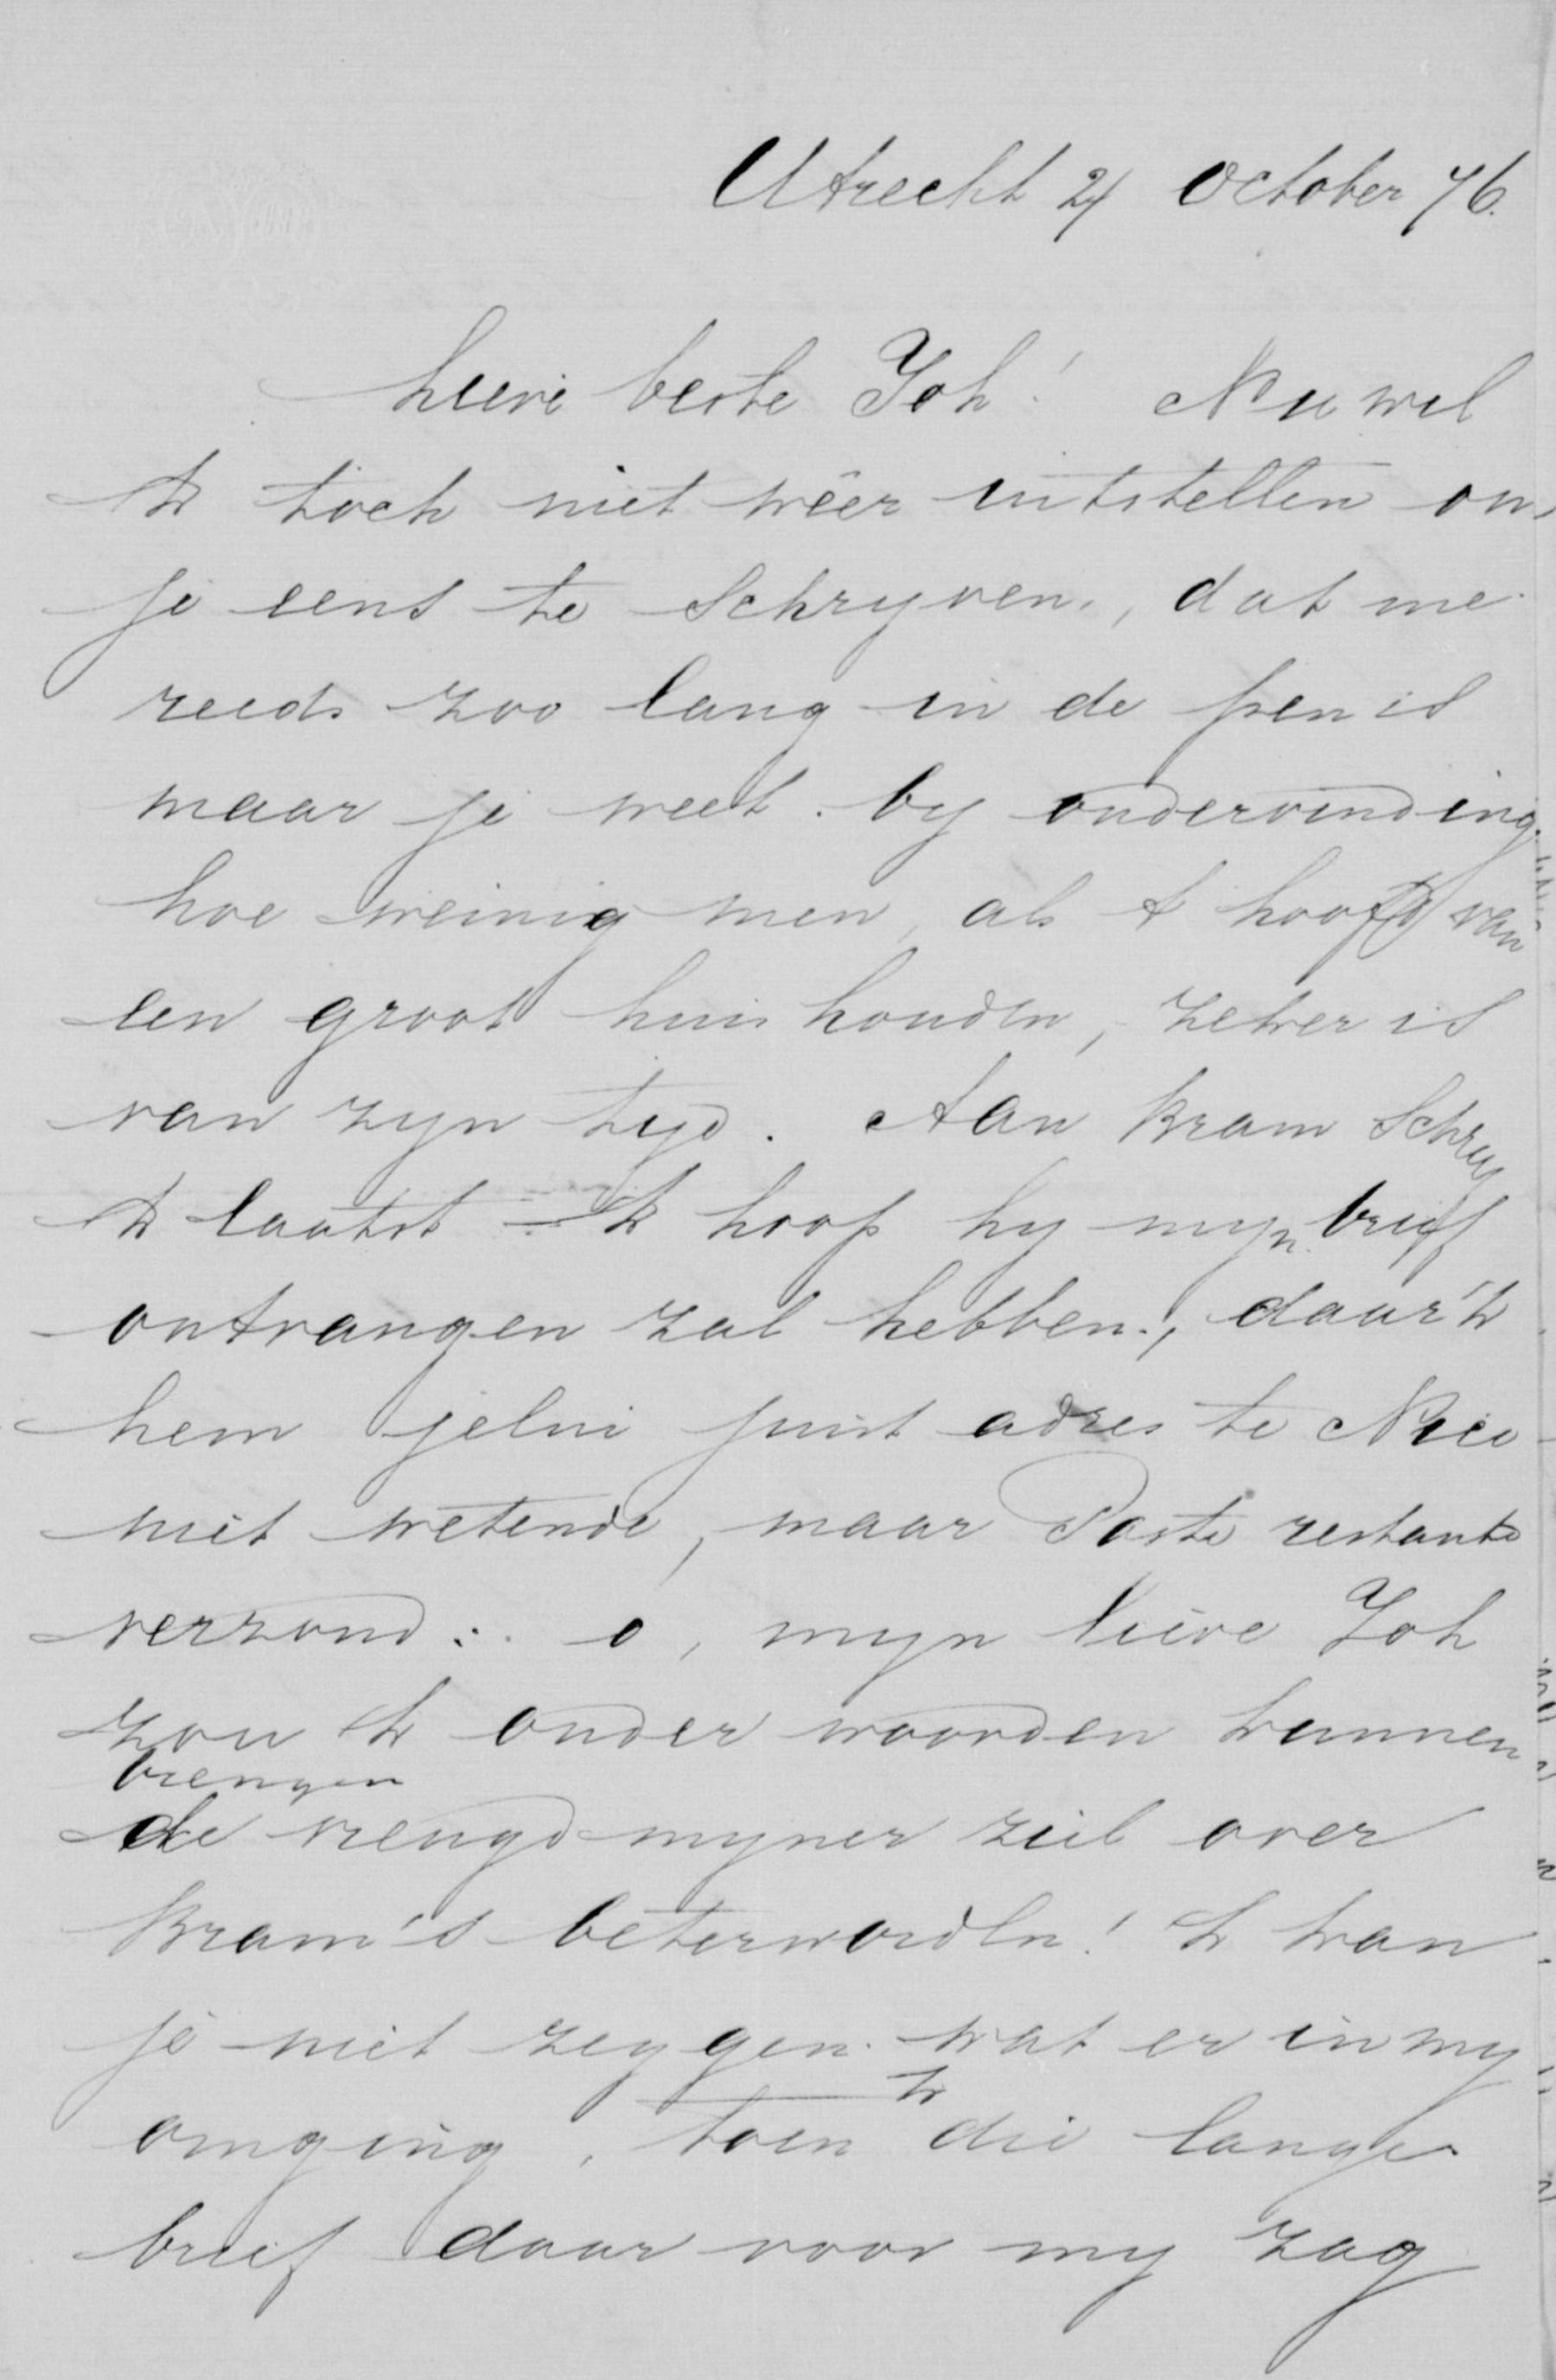 Utrecht 21 October 76.
Lieve beste Joh! Nu wil
ik toch niet wêer uitstellen om
je eens te schryven, dat me
reeds zoo lang in de pen is
maar je weet by ondervinding
hoe weinig men, als 't hoofd van
een groot huishouden, zeker is
van zyn tyd. Aan Bram schreef
ik laatst ik hoop hy myn brief
ontvangen zal hebben, daar 'k
hem jelui juist adres te Nice
niet wetende, maar Poste restante
verzond. o, myn lieve Joh
zou ik onder woorden kunnen
brengen
de vreugd myner ziel over
Bram's beterworden! Ik kan
je niet zeggen wat er in my
omging, toen ik die lange
brief daar voor my zag